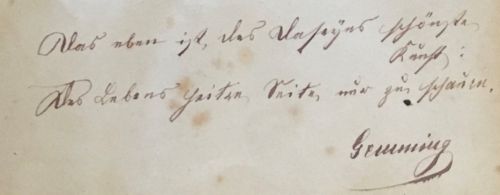 Das eben ist, des Daseyns schönste
Kunst:
Des Lebens heitre Seite nur zu schauen.
Gemming